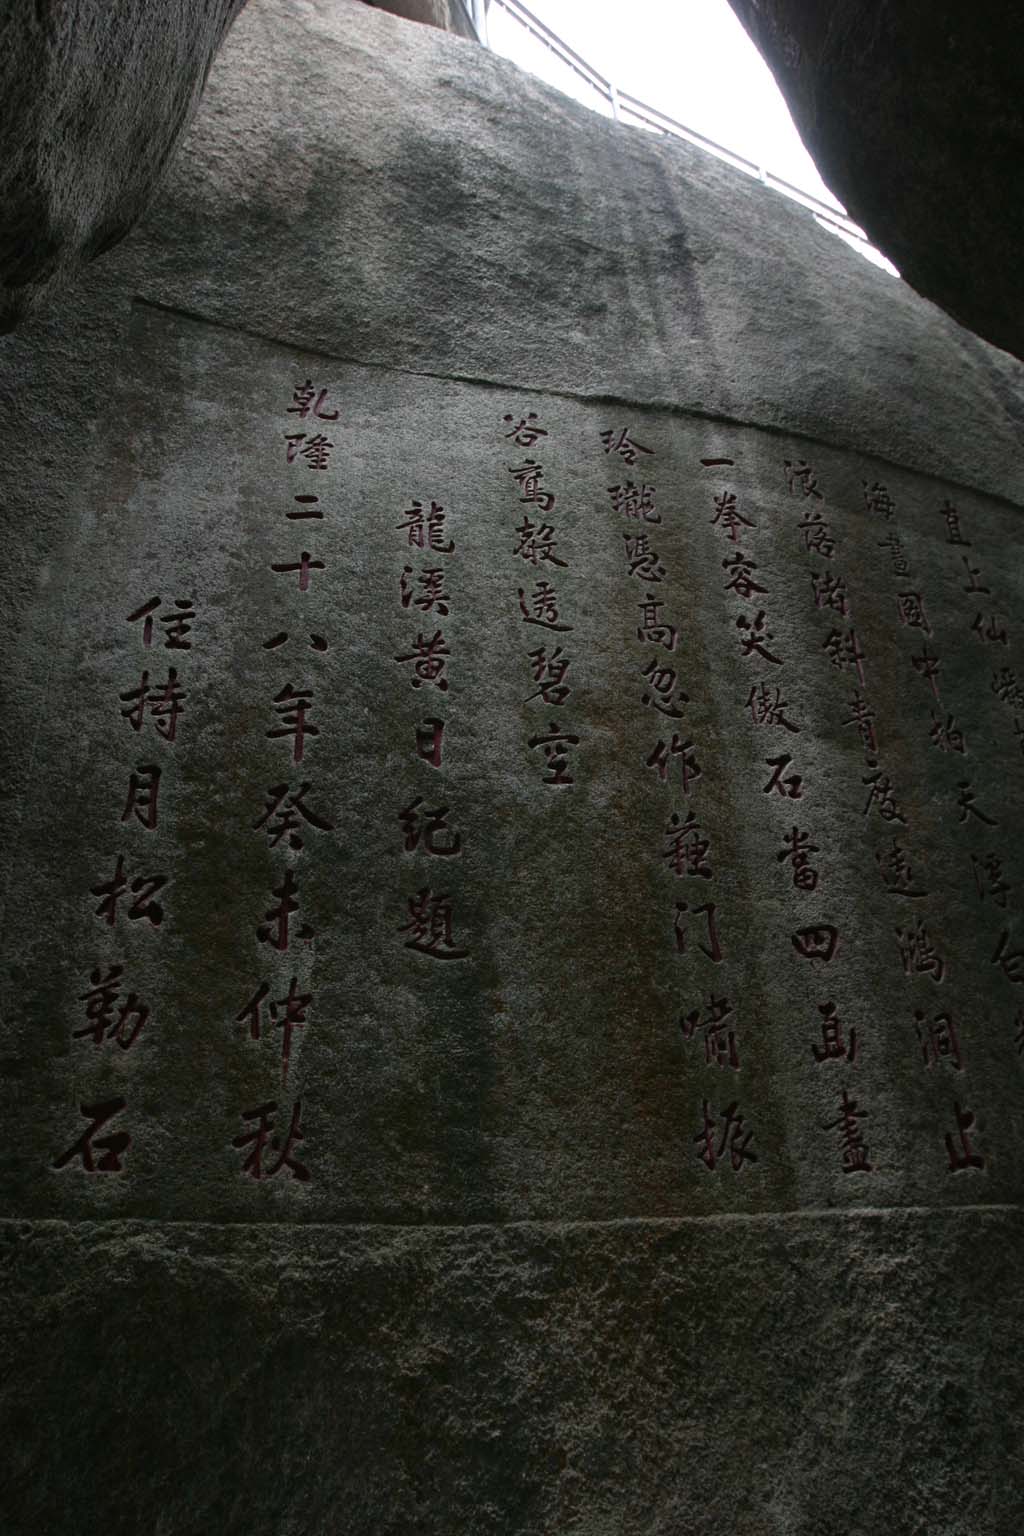 直上仙
海畫圖中拍天浮白
浪落渚斜青度遠鴻洞止
一拳容笑傲石當四面盡
玲瓏憑高忽作蘇門嘯振
谷鸞聲透碧空
龍溪黃日紀題
乾隆二十八年癸未仲秋
住持月松勒石